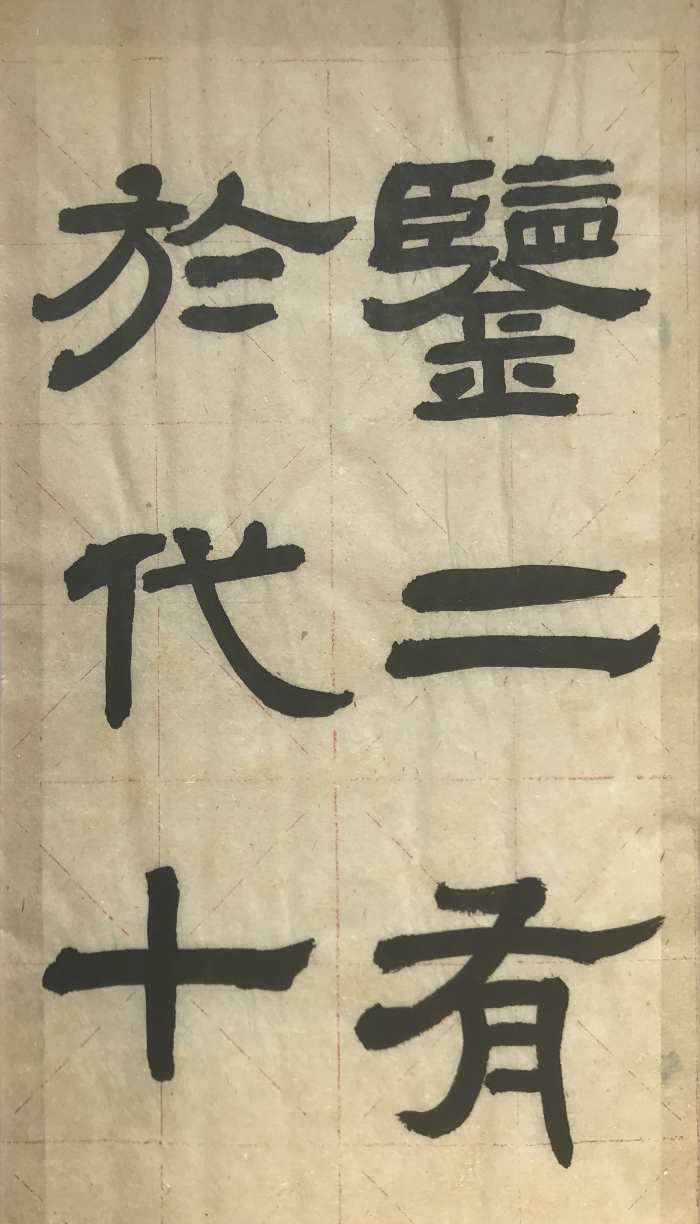 鑒於
二代
有十